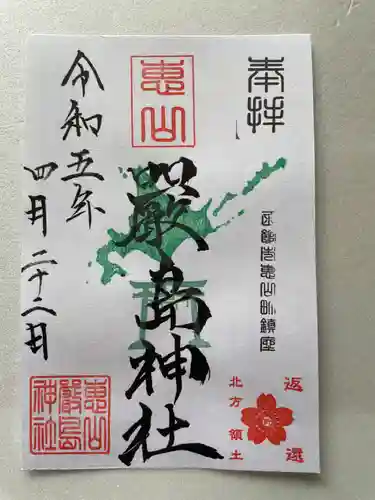 奉拝
函館市恵山町鎮座
返還
北方領土
恵山
厳島神社
令和五年
四月二十二日
恵山
厳島
神社